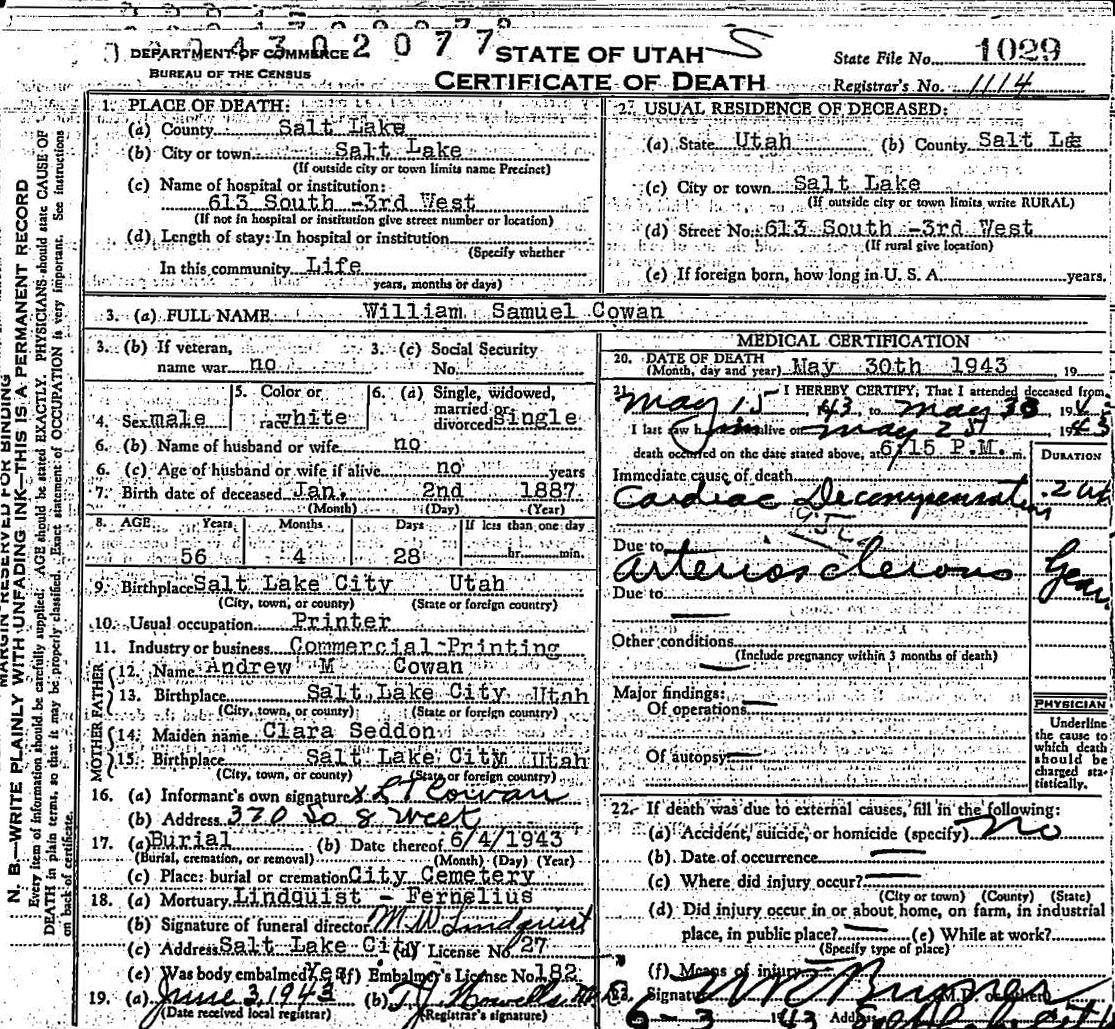 2 0 4 3 0 2 0 7 7
DEPARTMENT OF COMMERCE
BUREAU OF THE CENSUS
STATE OF UTAH
CERTIFICATE OF DEATH
State File No. 1029
Registrar's No. 1114
N. B.—WRITE PLAINLY WITH UNFADING INK—THIS IS A PERMANENT RECORD
MARGIN RESERVED FOR BINDING
Every item of information should be carefully supplied. AGE should be stated EXACTLY. PHYSICIANS should state CAUSE OF
DEATH in plain terms, so that it may be properly classified. Exact statement of OCCUPATION is very important. See instructions
on back of certificate.
1. PLACE OF DEATH:
(a) County Salt Lake
(b) City or town Salt Lake
(If outside city or town limits name Precinct)
(c) Name of hospital or institution:
613 South -3rd West
(If not in hospital or institution give street number or location)
(d) Length of stay: In hospital or institution
(Specify whether
In this community Life
years, months or days)
2. USUAL RESIDENCE OF DECEASED:
(a) State Utah (b) County Salt Lae
(c) City or town Salt Lake
(If outside city or town limits write RURAL)
(d) Street No. 613 South -3rd West
(If rural give location)
(e) If foreign born, how long in U. S. A. years.
3. (a) FULL NAME William Samuel Cowan
3. (b) If veteran,
name war no
3. (c) Social Security
No.
4. Sex male
5. Color or
race white
6. (a) Single, widowed,
married or
divorced Single
6. (b) Name of husband or wife no
6. (c) Age of husband or wife if alive no years
7. Birth date of deceased Jan. 2nd 1887
(Month) (Day) (Year)
8. AGE Years Months Days If less than one day
56 4 28 hr. min.
9. Birthplace Salt Lake City Utah
(City, town, or county) (State or foreign country)
10. Usual occupation Printer
11. Industry or business Commercial Printing
FATHER
12. Name Andrew M Cowan
13. Birthplace Salt Lake City Utah
(City, town, or county) (State or foreign country)
MOTHER
14. Maiden name Clara Seddon
15. Birthplace Salt Lake City Utah
(City, town, or county) (State or foreign country)
16. (a) Informant's own signature x L T Cowan
(b) Address 370 So 8 West
17. (a) Burial (b) Date thereof 6/4/1943
(Burial, cremation, or removal) (Month) (Day) (Year)
(c) Place: burial or cremation City Cemetery
18. (a) Mortuary Lindquist - Fernelius
(b) Signature of funeral director M. W. Lindquist
(c) Address Salt Lake City (d) License No. 27
(e) Was body embalmed Yes (f) Embalmer's License No. 182
19. (a) June 3, 1943 (b) T. J. Howells
(Date received local registrar) (Registrar's signature)
MEDICAL CERTIFICATION
20. DATE OF DEATH May 30th 1943 19
(Month, day and year)
21. I HEREBY CERTIFY, That I attended deceased from
May 15 43 to May 30 19
I last saw him alive on May 25 1943
death occurred on the date stated above, at 6/15 P.M. m.
DURATION
Immediate cause of death
Cardiac Decompensation 2 wk
Due to
Arteriosclerosis Years
Due to
Other conditions
(Include pregnancy within 3 months of death)
Major findings:
Of operations
Of autopsy
PHYSICIAN
Underline
the cause to
which death
should be
charged sta-
tistically.
22. If death was due to external causes, fill in the following:
(a) Accident, suicide, or homicide (specify) No
(b) Date of occurrence
(c) Where did injury occur?
(City or town) (County) (State)
(d) Did injury occur in or about home, on farm, in industrial
place, in public place? (e) While at work?
(Specify type of place)
(f) Means of injury
23. Signature
6 - 3 1943 Address